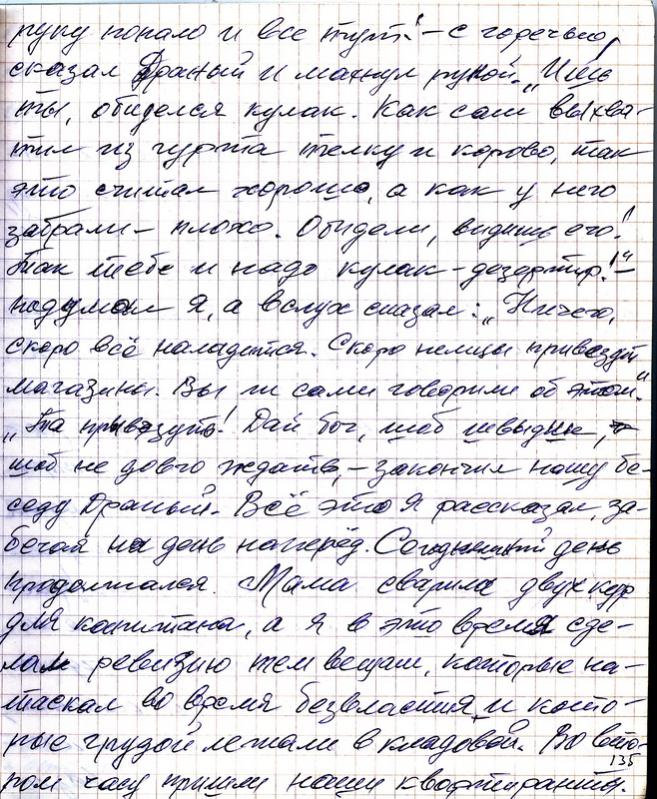 руку попало и все тут!" – с горечью,
сказал Драный и махнул рукой. „Ишь
ты, обиделся кулак. Как сам выхва-
тил из гурта телку и корову, так
это считал хорошо, а как у него
забрали – плохо. Обидели, видишь его!
Так тебе и надо кулак – дезертир!" –
подумал я, а вслух сказал: „Ничего,
скоро всё наладится. Скоро немцы привезут
магазины. Вы ж сами говорили об этом".
„Та привезуть! Дай бог, шоб швыдше,
шоб не довго ждать, – закончил нашу бе-
седу Драный. Всё это я рассказал, за-
бегая на день наперёд. Сегодняшний день
продолжался. Мама сварила двух кур
для капитана, а я в это время сде-
лал ревизию тем вещам, которые на-
таскал во время безвластия, и кото-
рые грудой лежали в кладовой. Во вто-
135
ром часу пришли наши квартиранты.